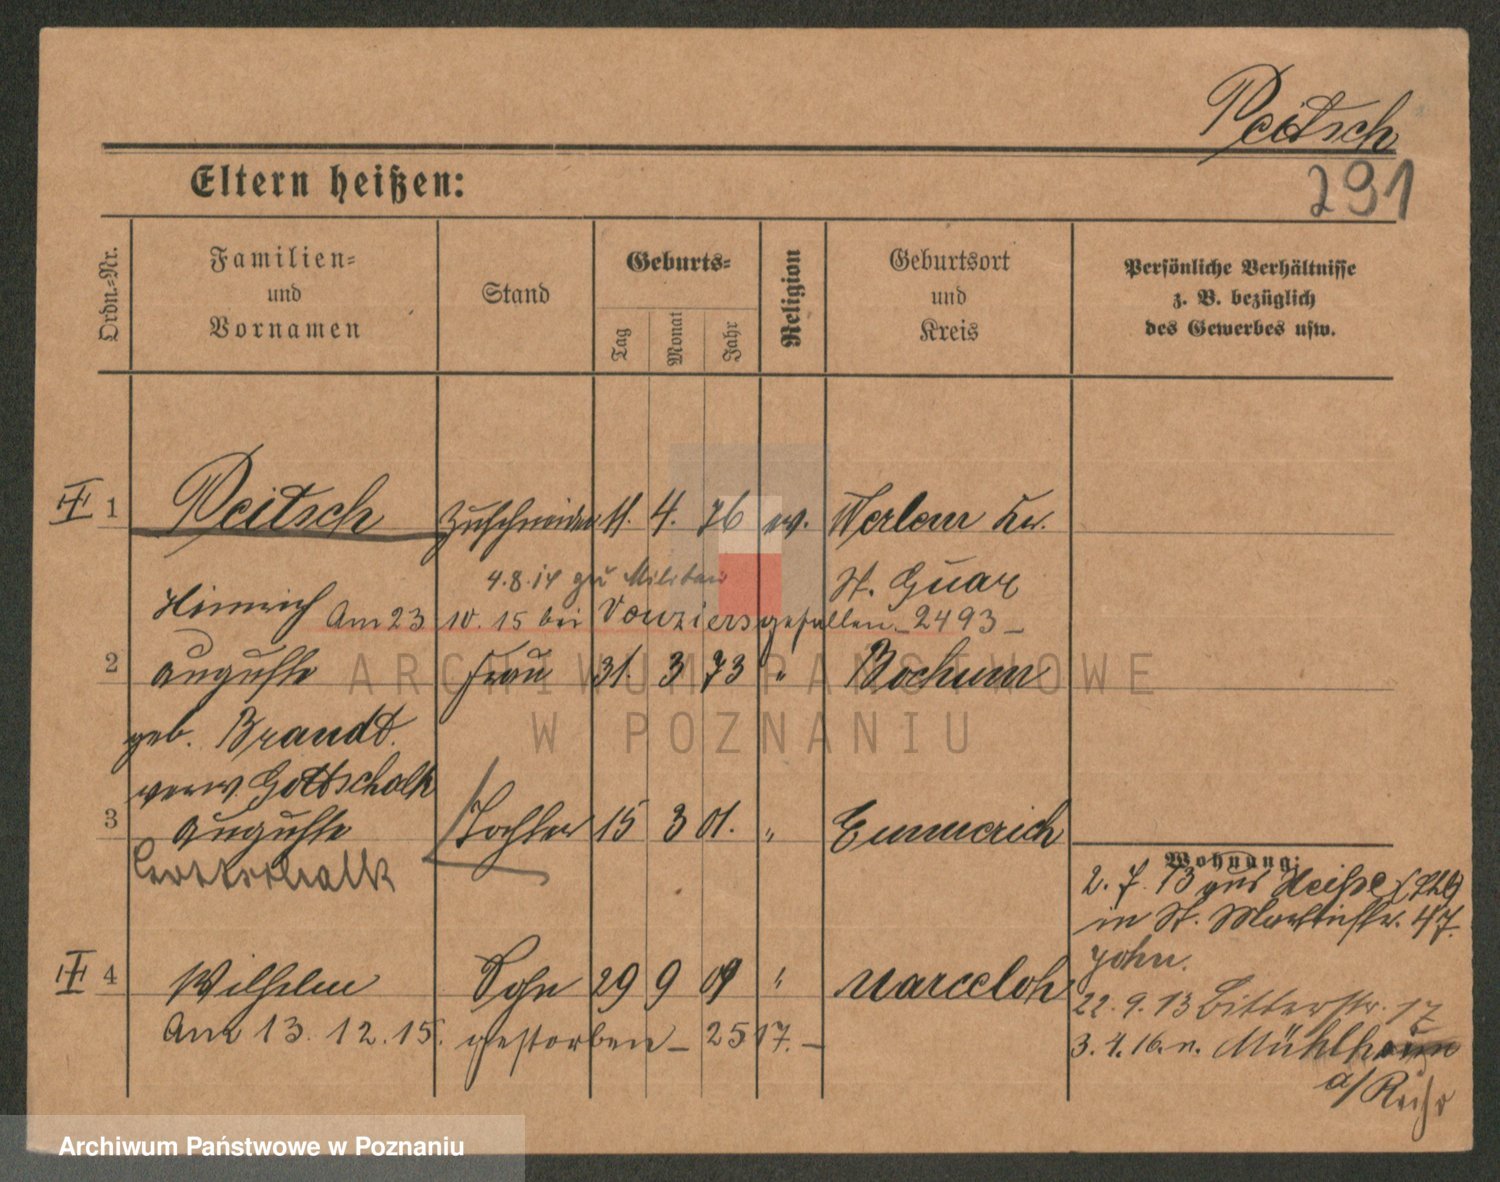 Peitsch
291
Eltern heißen:
Ordn.-Nr.
Familien-
und
Vornamen
Stand
Geburts-
Tag
Monat
Jahr
Religion
Geburtsort
und
Kreis
Persönliche Verhältnisse
z. B. bezüglich
des Gewerbes usw.
1 Peitsch Zuschneider 11. 4. 76 ev. Werlau Kr.
4.8.14 zu Militair St. Goar
Heinrich Am 23 10. 15 bei Vouziers gefallen - 2493 -
2 Auguste Frau 31. 3 73 " Bochum
geb. Brandt.
verw Gottschalk
3 Auguste Tochter 15 3 01. " Emmerich
Gottschalk
Wohnung:
2. 7. 13 aus
in St. Martinstr. 47.
4 Wilhelm Sohn 29 9 09 " Marxloh
22. 9. 13 Bitterstr. 17
Am 13. 12. 15. gestorben - 2517. -
3. 4. 16. n. Mühlheim
a/Ruhr
ARCHIWUM PAŃSTWOWE
W POZNANIU
Archiwum Państwowe w Poznaniu